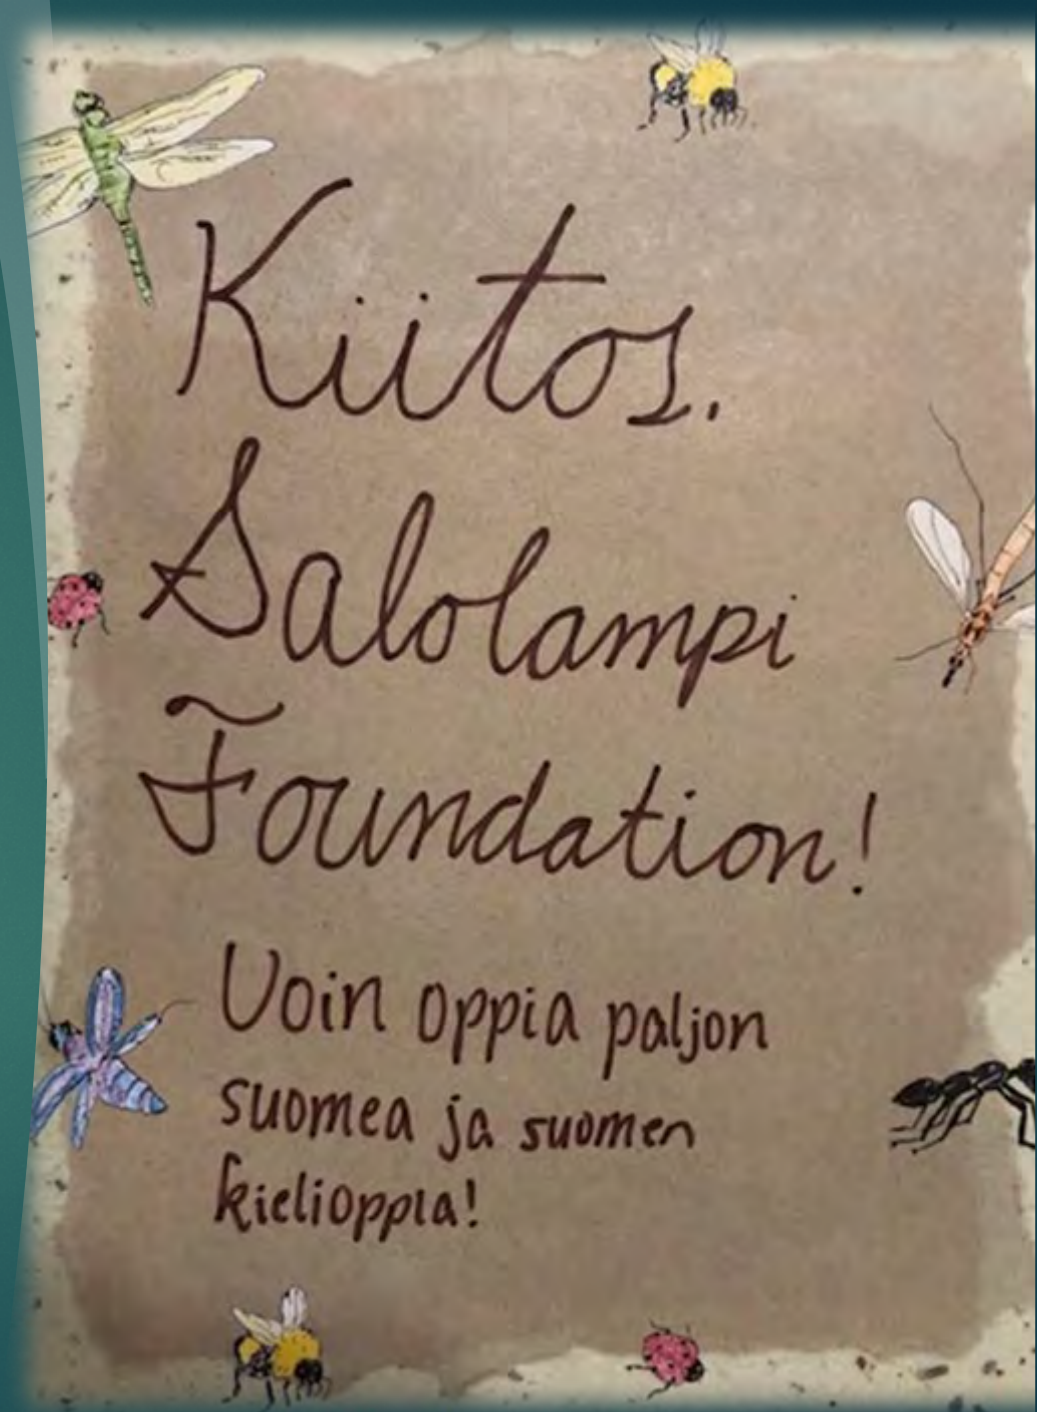 Kiitos.
Salolampi
Foundation!
Voin oppia paljon
suomea ja suomen
kielioppia!